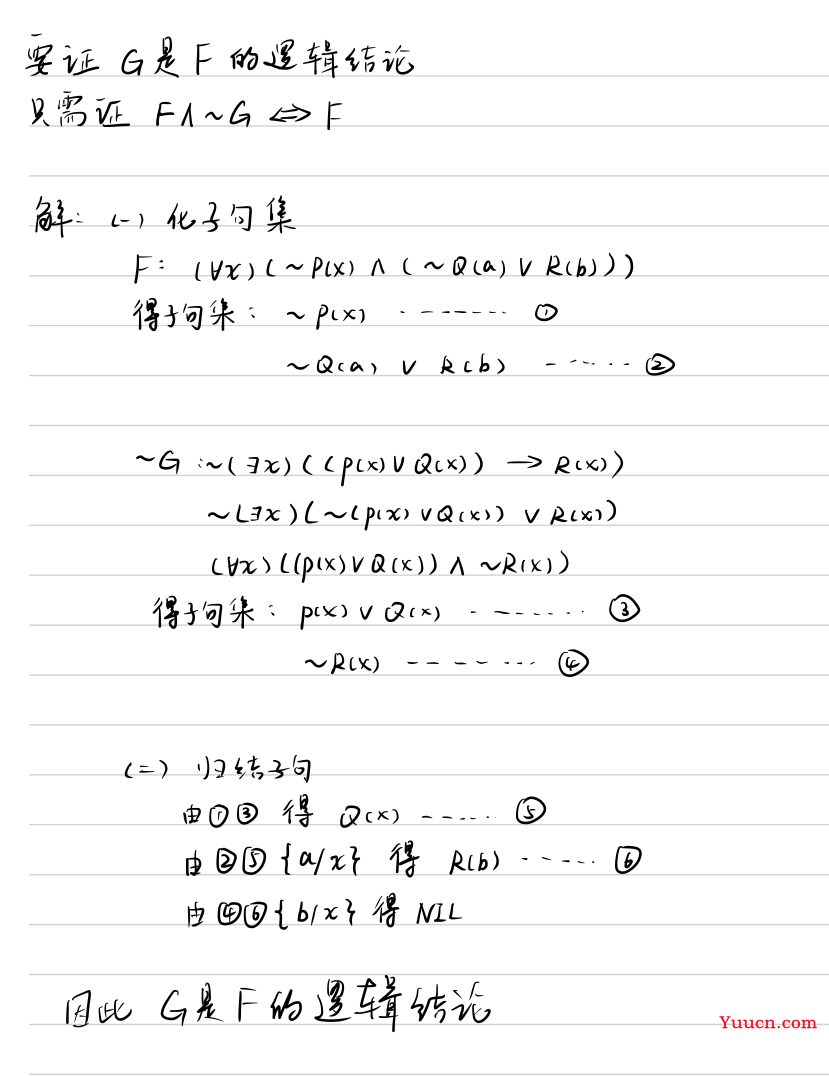 要证 G是F的逻辑结论
只需证 F∧~G ⇔ F
解: (一) 化子句集
F: (∀x)(~P(x) ∧ (~Q(a) ∨ R(b)))
得子句集: ~P(x) -------- ①
~Q(a) ∨ R(b) ------ ②
~G :~(∃x)((P(x)∨Q(x)) → R(x))
~(∃x)(~(P(x)∨Q(x)) ∨ R(x))
(∀x)((P(x)∨Q(x)) ∧ ~R(x))
得子句集: P(x)∨Q(x) -------- ③
~R(x) -------- ④
(二) 归结子句
由①③ 得 Q(x) ------ ⑤
由②⑤{a/x} 得 R(b) ------ ⑥
由④⑥{b/x} 得 NIL
因此 G是F的逻辑结论
Yuucn.com